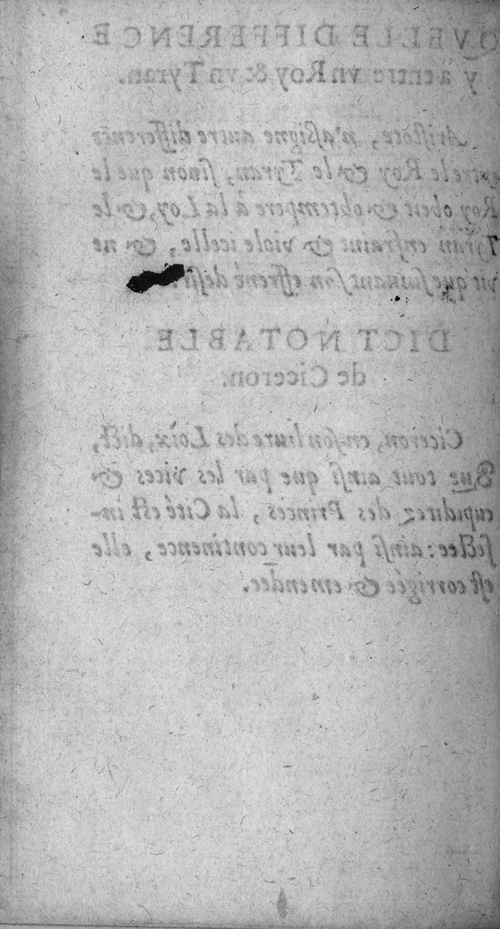 QVELLE DIFFERENCE
y a entre vn Roy & vn Tyran.
Aristote, n'asigne autre difference
entre le Roy & le Tyran, sinon que le
Roy obeit & obtempere à la Loy, & le
Tyran enfraint & viole icelle, & ne
vit que suiuant son effrené desir.
DICT NOTABLE
de Ciceron.
Ciceron, en son liure des Loix, dict,
Que tout ainsi que par les vices &
cupiditez des Princes, la Cité est in-
fectee: ainsi par leur continence, elle
est corrigée & emendee.